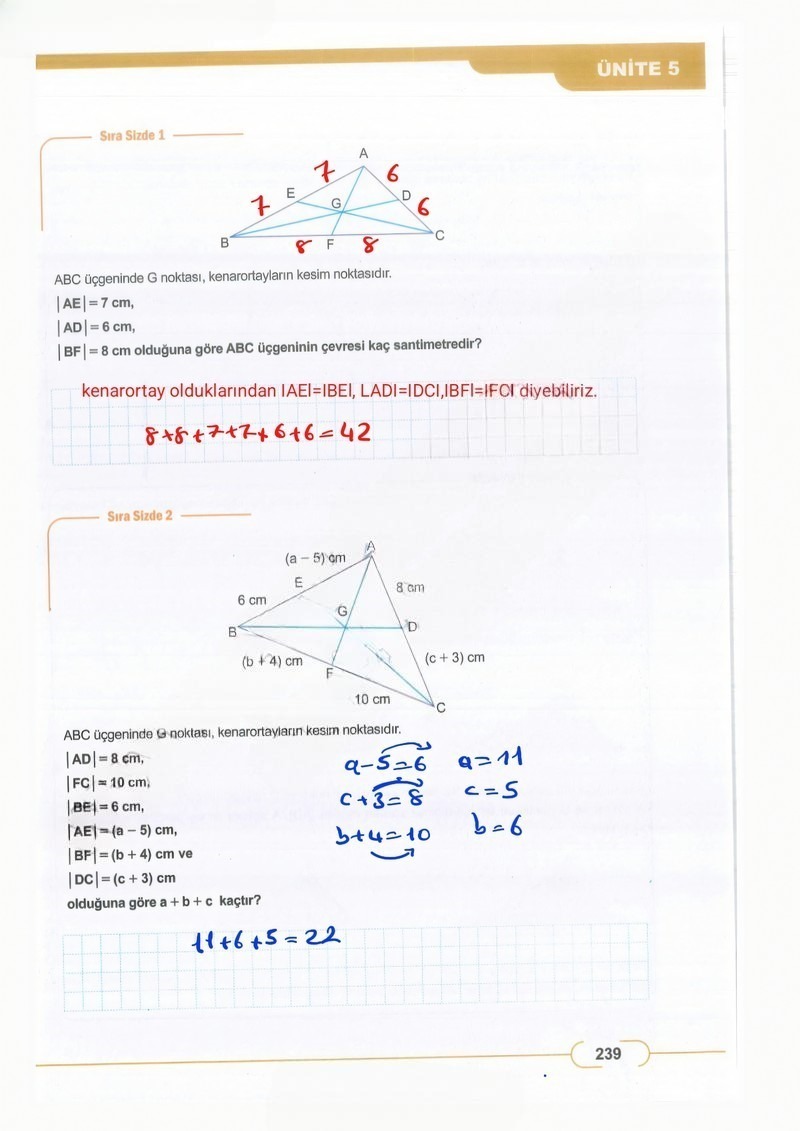 ÜNİTE 5
Sıra Sizde 1
A
7 6
E D
7 G 6
B 8 F 8 C
ABC üçgeninde G noktası, kenarortayların kesim noktasıdır.
|AE| = 7 cm,
|AD| = 6 cm,
|BF| = 8 cm olduğuna göre ABC üçgeninin çevresi kaç santimetredir?
kenarortay olduklarından IAEI=IBEI, LADI=IDCI,IBFI=IFCI diyebiliriz.
8+8+7+7+6+6=42
Sıra Sizde 2
A
(a – 5) cm
E 8 cm
6 cm G
B D
(b + 4) cm F (c + 3) cm
10 cm C
ABC üçgeninde G noktası, kenarortayların kesim noktasıdır.
|AD| = 8 cm, a-5=6 a=11
|FC| = 10 cm, c+3=8 c=5
|BE| = 6 cm,
|AE| = (a – 5) cm, b+4=10 b=6
|BF| = (b + 4) cm ve
|DC| = (c + 3) cm
olduğuna göre a + b + c kaçtır?
11+6+5=22
239